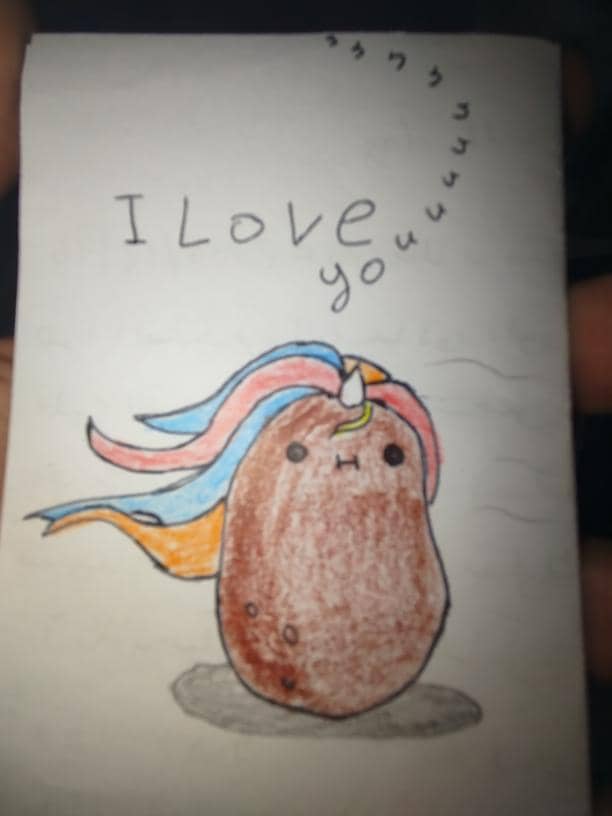 I Love
youuuuuuuuu